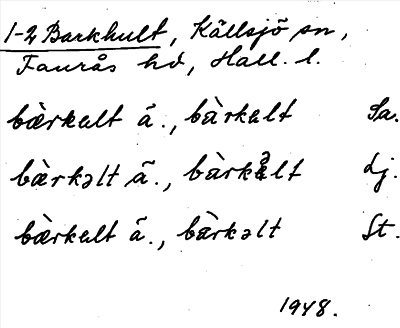 1-2 Barkhult, Källsjö sn,
Faurås hd, Hall. l.
bæ̀rkult ä., bàrkult Sa.
bæ̀rkəlt ä., bàrkəlt Lj.
bæ̀rkult ä., bàrkəlt St.
1948.